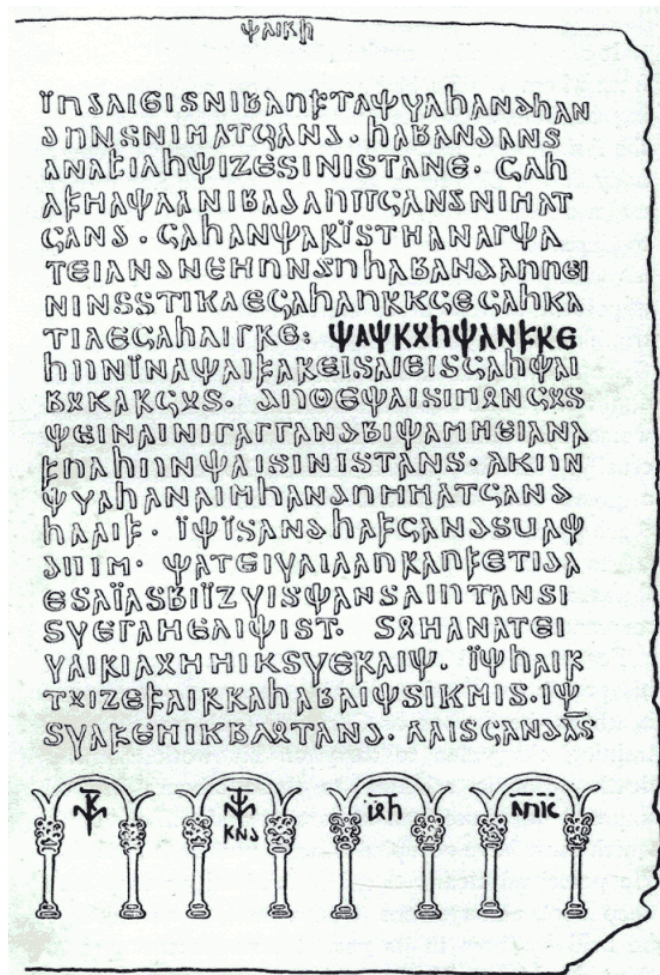 𐌸𐌰𐌹𐍂𐌷
𐌹̈𐌿𐌳𐌰𐌹𐌴𐌹𐍃𐌽𐌹𐌱𐌰𐌿𐍆𐍄𐌰𐌸𐍅𐌰𐌷𐌰𐌽𐌳𐌷𐌰𐌽
𐌳𐌿𐌽𐍃𐌽𐌹𐌼𐌰𐍄𐌾𐌰𐌽𐌳. 𐌷𐌰𐌱𐌰𐌽𐌳𐌰𐌽𐍃
𐌰𐌽𐌰𐍆𐌹𐌻𐌷𐌸𐌹𐌶𐌴𐍃𐌹𐌽𐌹𐍃𐍄𐌰𐌽𐌴. 𐌾𐌰𐌷
𐌰𐍆𐌼𐌰𐌸𐌻𐌰𐌽𐌹𐌱𐌰𐌳𐌰𐌿𐍀𐌾𐌰𐌽𐌳𐌽𐌹𐌼𐌰𐍄
𐌾𐌰𐌽𐌳. 𐌾𐌰𐌷𐌰𐌽𐌸𐌰𐍂𐌹̈𐍃𐍄𐌼𐌰𐌽𐌰𐌲𐌸𐌰
𐍄𐌴𐌹𐌰𐌽𐌳𐌽𐌴𐌼𐌿𐌽𐌳𐌿𐌷𐌰𐌱𐌰𐌽𐌳𐌰𐌿𐍀𐌴𐌹
𐌽𐌹𐌽𐍃𐍃𐍄𐌹𐌺𐌻𐌴𐌾𐌰𐌷𐌰𐌿𐍂𐌺𐌾𐌴𐌾𐌰𐌷𐌺𐌰
𐍄𐌹𐌻𐌴𐌾𐌰𐌷𐌻𐌹𐌲𐍂𐌴: 𐌸𐌰𐌸𐍂𐍉𐌷𐌸𐌰𐌽𐍆𐍂𐌴
𐌷𐌿𐌽𐌹̈𐌽𐌰𐌸𐌰𐌹𐍆𐌰𐍂𐌴𐌹𐍃𐌰𐌹𐌴𐌹𐍃𐌾𐌰𐌷𐌸𐌰𐌹
𐌱𐍉𐌺𐌰𐍂𐌾𐍉𐍃. 𐌳𐌿𐍈𐌴𐌸𐌰𐌹𐍃𐌹𐍀𐍉𐌽𐌾𐍉𐍃
𐌸𐌴𐌹𐌽𐌰𐌹𐌽𐌹𐌲𐌰𐌲𐌲𐌰𐌽𐌳𐌱𐌹𐌸𐌰𐌼𐌼𐌴𐌹𐌰𐌽𐌰
𐍆𐌿𐌻𐌷𐌿𐌽𐌸𐌰𐌹𐍃𐌹𐌽𐌹𐍃𐍄𐌰𐌽𐍃. 𐌰𐌺𐌿𐌽
𐌸𐍅𐌰𐌷𐌰𐌽𐌰𐌹𐌼𐌷𐌰𐌽𐌳𐌿𐌼𐌼𐌰𐍄𐌾𐌰𐌽𐌳
𐌷𐌻𐌰𐌹𐍆. 𐌹̈𐌸𐌹̈𐍃𐌰𐌽𐌳𐌷𐌰𐍆𐌾𐌰𐌽𐌳𐍃𐌵𐌰𐌸
𐌳𐌿𐌹𐌼. 𐌸𐌰𐍄𐌴𐌹𐍅𐌰𐌹𐌻𐌰𐍀𐍂𐌰𐌿𐍆𐌴𐍄𐌹𐌳𐌰
𐌴𐍃𐌰𐌹̈𐌰𐍃𐌱𐌹𐌹̈𐌶𐍅𐌹𐍃𐌸𐌰𐌽𐍃𐌻𐌹𐌿𐍄𐌰𐌽𐍃
𐍃𐍅𐌴𐌲𐌰𐌼𐌴𐌻𐌹𐌸𐌹𐍃𐍄. 𐍃𐍉𐌼𐌰𐌽𐌰𐌲𐌴𐌹
𐍅𐌰𐌹𐍂𐌹𐌻𐍉𐌼𐌼𐌹𐌺𐍃𐍅𐌴𐍂𐌰𐌹𐌸. 𐌹̈𐌸𐌷𐌰𐌹𐍂
𐍄𐍉𐌹𐌶𐌴𐍆𐌰𐌹𐍂𐍂𐌰𐌷𐌰𐌱𐌰𐌹𐌸𐍃𐌹𐌺𐌼𐌹𐍃. 𐌹𐌸
𐍃𐍅𐌰𐍂𐌴𐌼𐌹𐌺𐌱𐌻𐍉𐍄𐌰𐌽𐌳. 𐌻𐌰𐌹𐍃𐌾𐌰𐌽𐌳𐌰̅𐍃
𐌹̈𐍉𐌷 𐌻𐌿𐌺